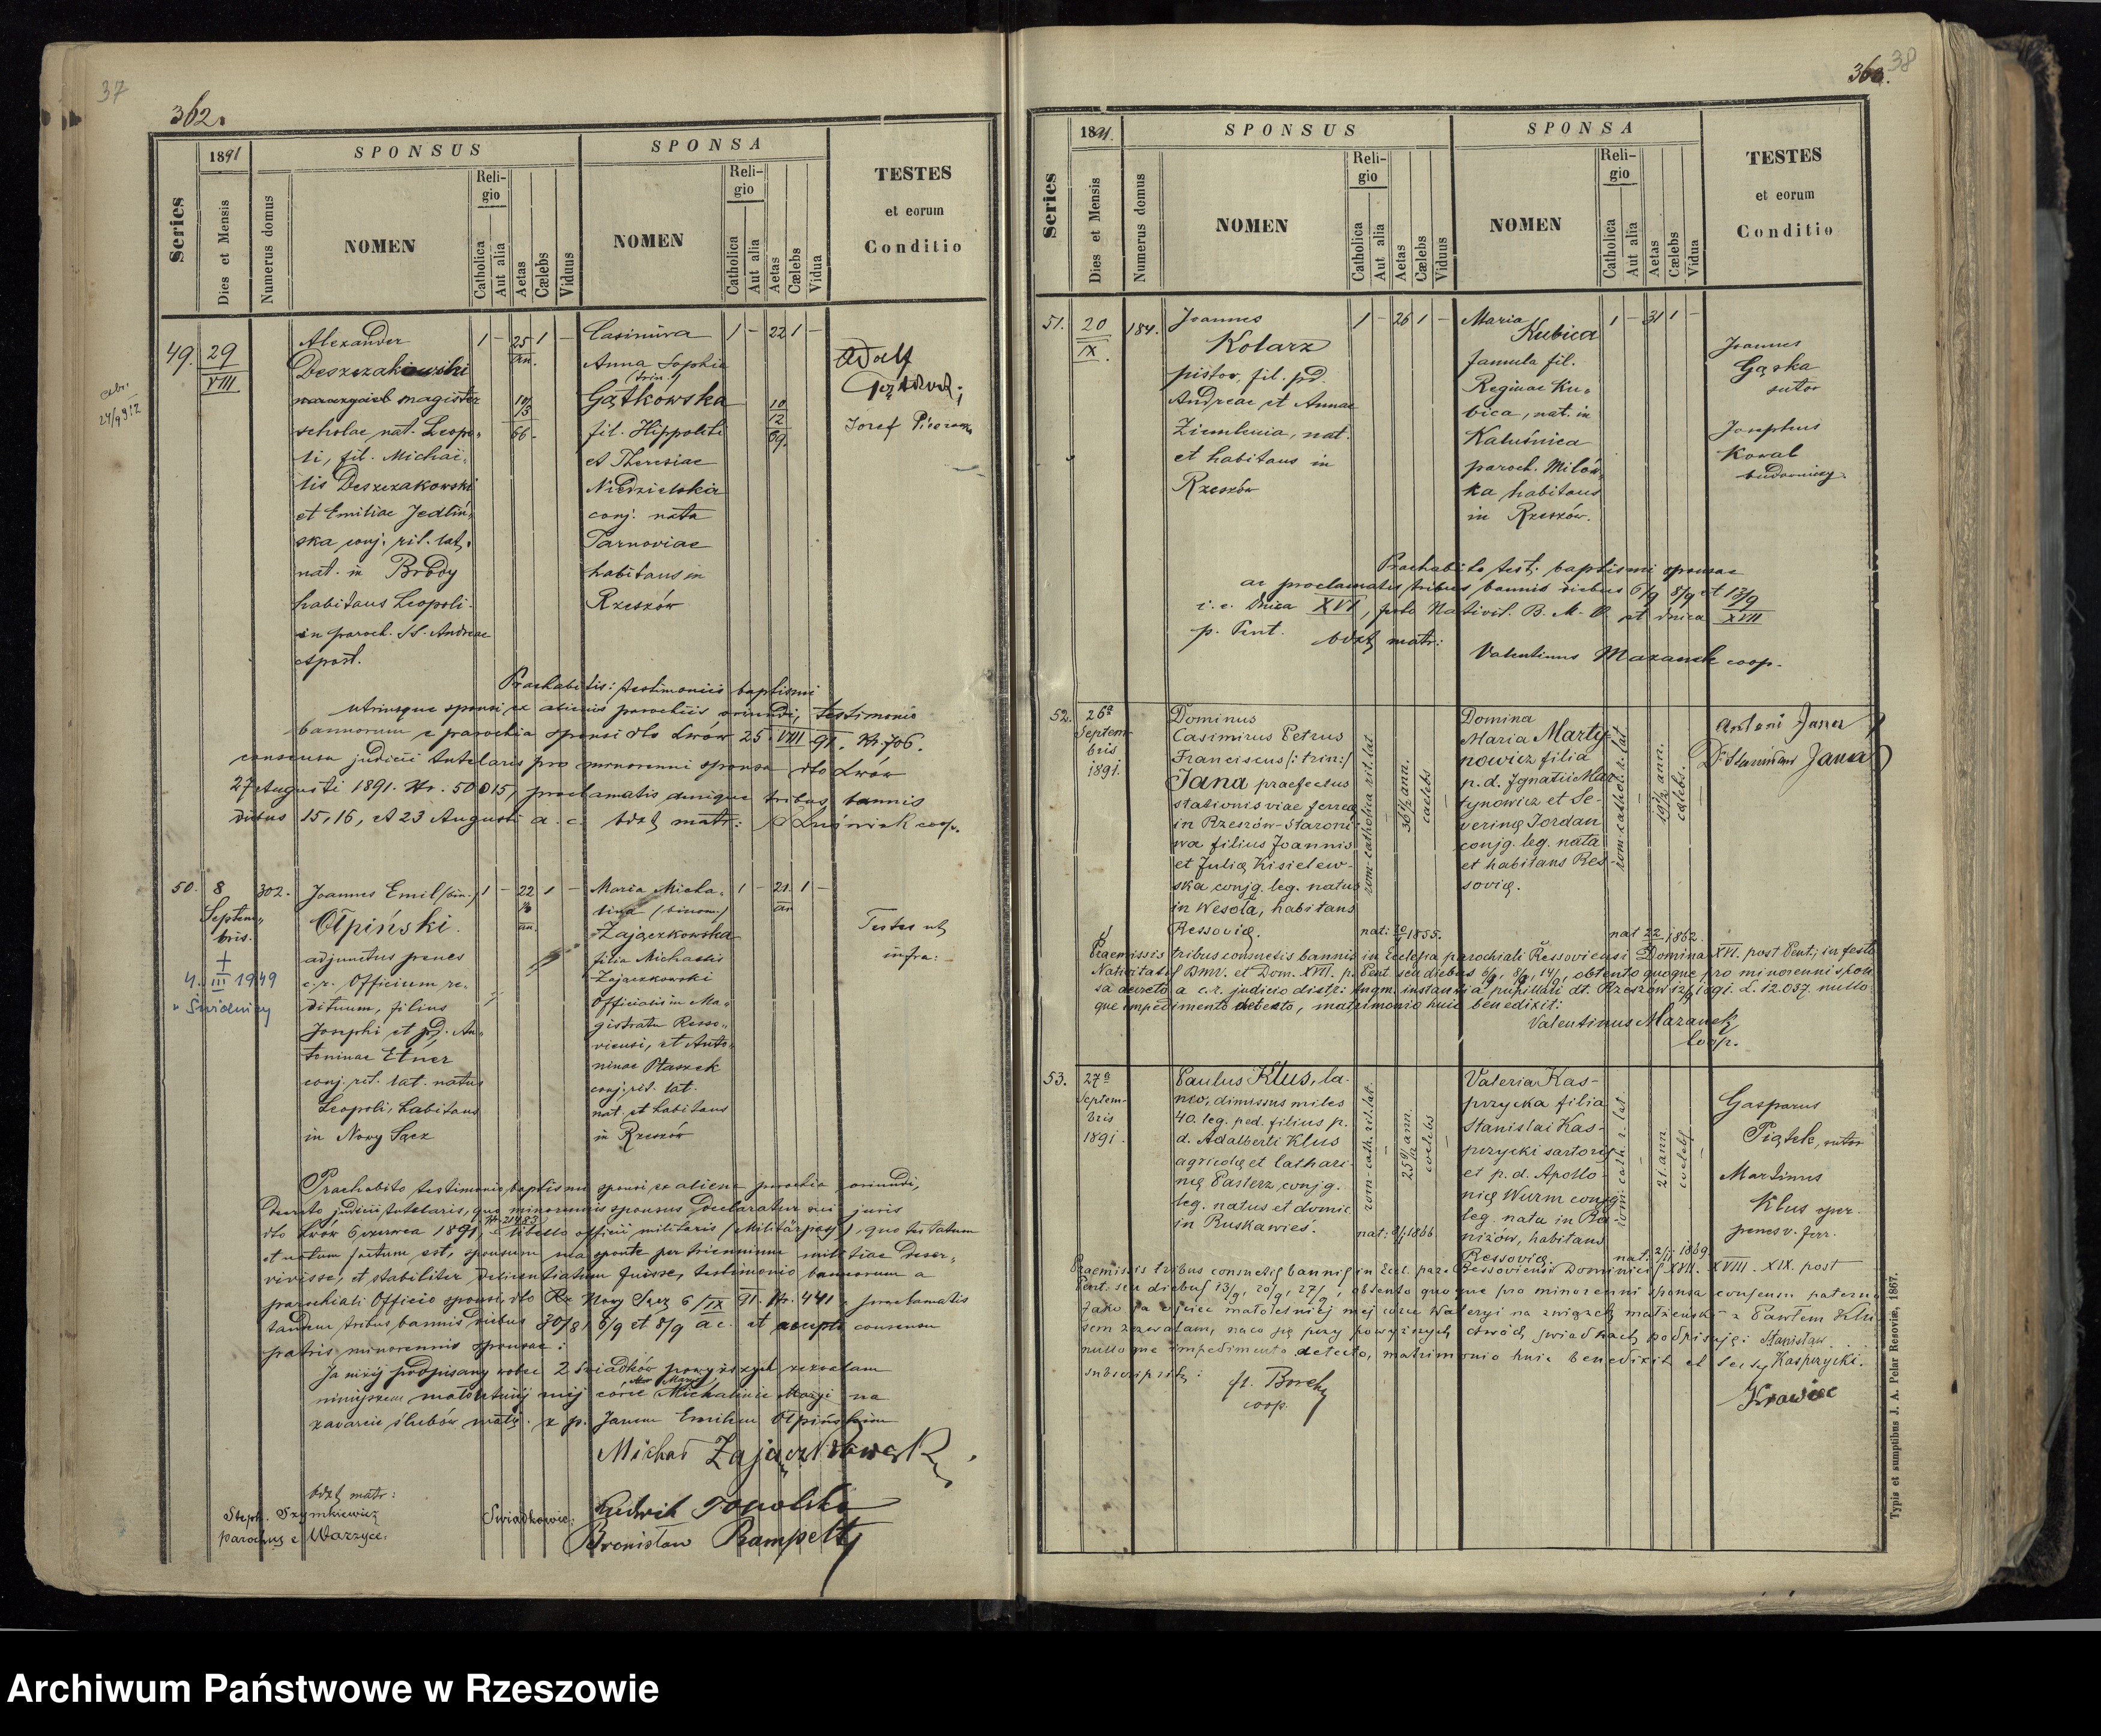 37
362.
1891
SPONSUS
SPONSA
Series
Dies et Mensis
Numerus domus
NOMEN
Reli-
gio
Catholica
Aut alia
Aetas
Cælebs
Viduus
NOMEN
Reli-
gio
Catholica
Aut alia
Aetas
Cælebs
Vidua
TESTES
et eorum
Conditio
49.
29
VIII.
24/9 912
Alexander
magister
scholae nat. Leopo-
li, fil. Michaë-
lis Deszczakowski
et Emiliae Jedliń-
ska conj. rit. lat.
nat. in Brody
habitans Leopoli
in paroch. SS. Andreae
Apost.
1 - 25 1 -
an.
Casimira
Anna Sophia
(trin.)
Gątkowska
fil. Hippoliti
et Theresiae
Niedzielska
conj. nata
Tarnoviae
habitans in
Rzeszów
1 - 22 1 -
10
12
69.
Adolf
Józef
Praehabitis: testimoniis baptismi
utriusque sponsi ex alienis parochiis oriundi, testimonio
bannorum e parochia sponsi dto Lwów 25 VIII 91. Nr. 706.
consensu judicii tutelaris pro minorenni sponsa dto Lwów
27 Augusti 1891. Nr. 50015, proclamatis denique tribus bannis
diebus 15, 16, et 23 Augusti a. c. bdxt matr: coop.
50.
8
Septem-
bris.
+
4. III 1949
w Świdnicy
302.
Joannes Emil (bin.)
Olpiński.
adjunctus penes
c. r. Officium re-
dituum, filius
Josephi et pd. An-
toninae Etner
conj. rit. lat. natus
Leopoli, habitans
in Nowy Sącz
1 - 22 1 -
an.
Maria Micha-
lina (binom.)
Zajączkowska
filia Michaelis
Zajączkowski
Officialis in Ma-
gistratu Resso-
viensi, et Anto-
ninae Ptaszek
conj. rit. lat.
nat. et habitans
in Rzeszów
1 - 21 1 -
an
Testes ut
infra:
Praehabito testimonio baptismi sponsi ex aliena parochia oriundi,
Decreto judicii tutelaris, quo minorennis sponsus declaratur sui juris
dto Lwów 6 czerwca 1891, libello officii militaris (Militärpass), quo testatum
et notum factum est, sponsum sua sponte per triennium militiae deser-
vivisse, et stabiliter delicentiatum fuisse, testimonio bannorum a
parochiali Officio sponsi, dto Nowy Sącz 6/IX 91. Nr. 441 proclamatis
tandem tribus bannis diebus 30/8, 6/9 et 8/9 a c. et accepto consensu
patris minorennis sponsae:
Ja niżej podpisany wobec 2 świadków powyższych zezwalam
niniejszem małoletniej mej córce Michalinie Maryi na
zawarcie ślubów małż. z p. Janem Emilem Olpińskim
Michał Zajączkowski
bdxt matr:
Steph. Szymkiewicz
parochus e Warzyce.
Świadkowie:
Ludwik
Bronisław Rampelt
38
363.
1891.
SPONSUS
SPONSA
Series
Dies et Mensis
Numerus domus
NOMEN
Reli-
gio
Catholica
Aut alia
Aetas
Cælebs
Viduus
NOMEN
Reli-
gio
Catholica
Aut alia
Aetas
Cælebs
Vidua
TESTES
et eorum
Conditio
51.
20
IX.
184.
Joannes
Kolarz
pistor, fil. pd.
Andreae et Annae
Ziembenia, nat.
et habitans in
Rzeszów
1 - 26 1 -
Maria
Kubica
famula fil.
Reginae Ku-
bica, nat. in
Kaluśnica
paroch. Milów-
ka habitans
in Rzeszów.
1 - 31 1 -
Joannes
Gąska
sutor
Josephus
Kowal
budowniczy.
Praehabito test: baptismi sponsae
ac proclamatis tribus bannis diebus 6/9 8/9 et 13/9
i. e. Dnica XVI, festo Nativit. B. M. V. et dnica XVII
p. Pent. bdxt matr:
Valentinus Mazanek coop.
52.
26ª
Septem-
bris
1891.
Dominus
Casimirus Petrus
Franciscus /: trin:/
Jana praefectus
stationis viae ferreae
in Rzeszów-Staroni-
wa filius Joannis
et Julię Kisielew-
ska conjg. leg. natus
in Wesoła, habitans
Ressovię.
rom-catholica rit. lat.
36 ½ ann.
caelebs
Domina
Maria Marty-
nowicz filia
p. d. Ignatii Mar-
tynowicz et Se-
verinę Jordan
conjg. leg. nata
et habitans Res-
sovię.
rom-cathol. r. lat.
19 ½ ann.
caelebs.
Antoni Jana
Dr Stanisław Jana
Praemissis tribus consuetis bannis in Ecclesia parochiali Ressoviensi Dominca XVI. post Pent., in festo
Nativitatis Bmv. et Dom. XVII. p. Pent. seu diebus 6/9, 8/9, 14/9, obtento quoque pro minorenni spon-
sa decreto a c. r. judicio distr: qua instantia pupillari dt. Rzeszów 12/9 1891. L. 12.037. nullo-
que impedimento detecto, matrimonio huic benedixit:
Valentinus Mazanek
Coop.
53.
27ª
Septem-
bris
1891.
Paulus Klus, la-
nio, dimissus miles
40. leg. ped. filius p.
d. Adalberti Klus
agricolę et Cathari-
nę Pasterz, conjg.
leg. natus et domic.
in Ruskawieś.
rom-cath. rit. lat.
caelebs
Valeria Kas-
przycka filia
Stanislai Kas-
przycki sartoris
et p. d. Apollo-
nię Wurm conjg.
leg. nata in Ra-
niżów, habitans
Ressovię.
rom: cath. r. lat.
21. ann.
caelebs
Gasparus
Piątek, sutor
Martinus
Klus oper.
penes v. ferr.
Praemissis tribus consuetis bannis in Eccl. par. Ressoviensi Dominicis XVII. XVIII. XIX. post
Pent. seu diebus 13/9, 20/9, 27/9, obtento quoque pro minorenni sponsa consensu paterno
Jako ojciec małoletniej mej córce Waleryi na związek małżeński z Pawłem Klu-
sem zezwalam, na co się przy powyższych dwóch świadkach podpisuję: Stanisław
nulloque impedimento detecto, matrimonio huic benedixit et se Kasprzycki.
subscripsit:
coop.
Krawiec
Typis et sumptibus J. A. Pelar Resoviae, 1867.
Archiwum Państwowe w Rzeszowie